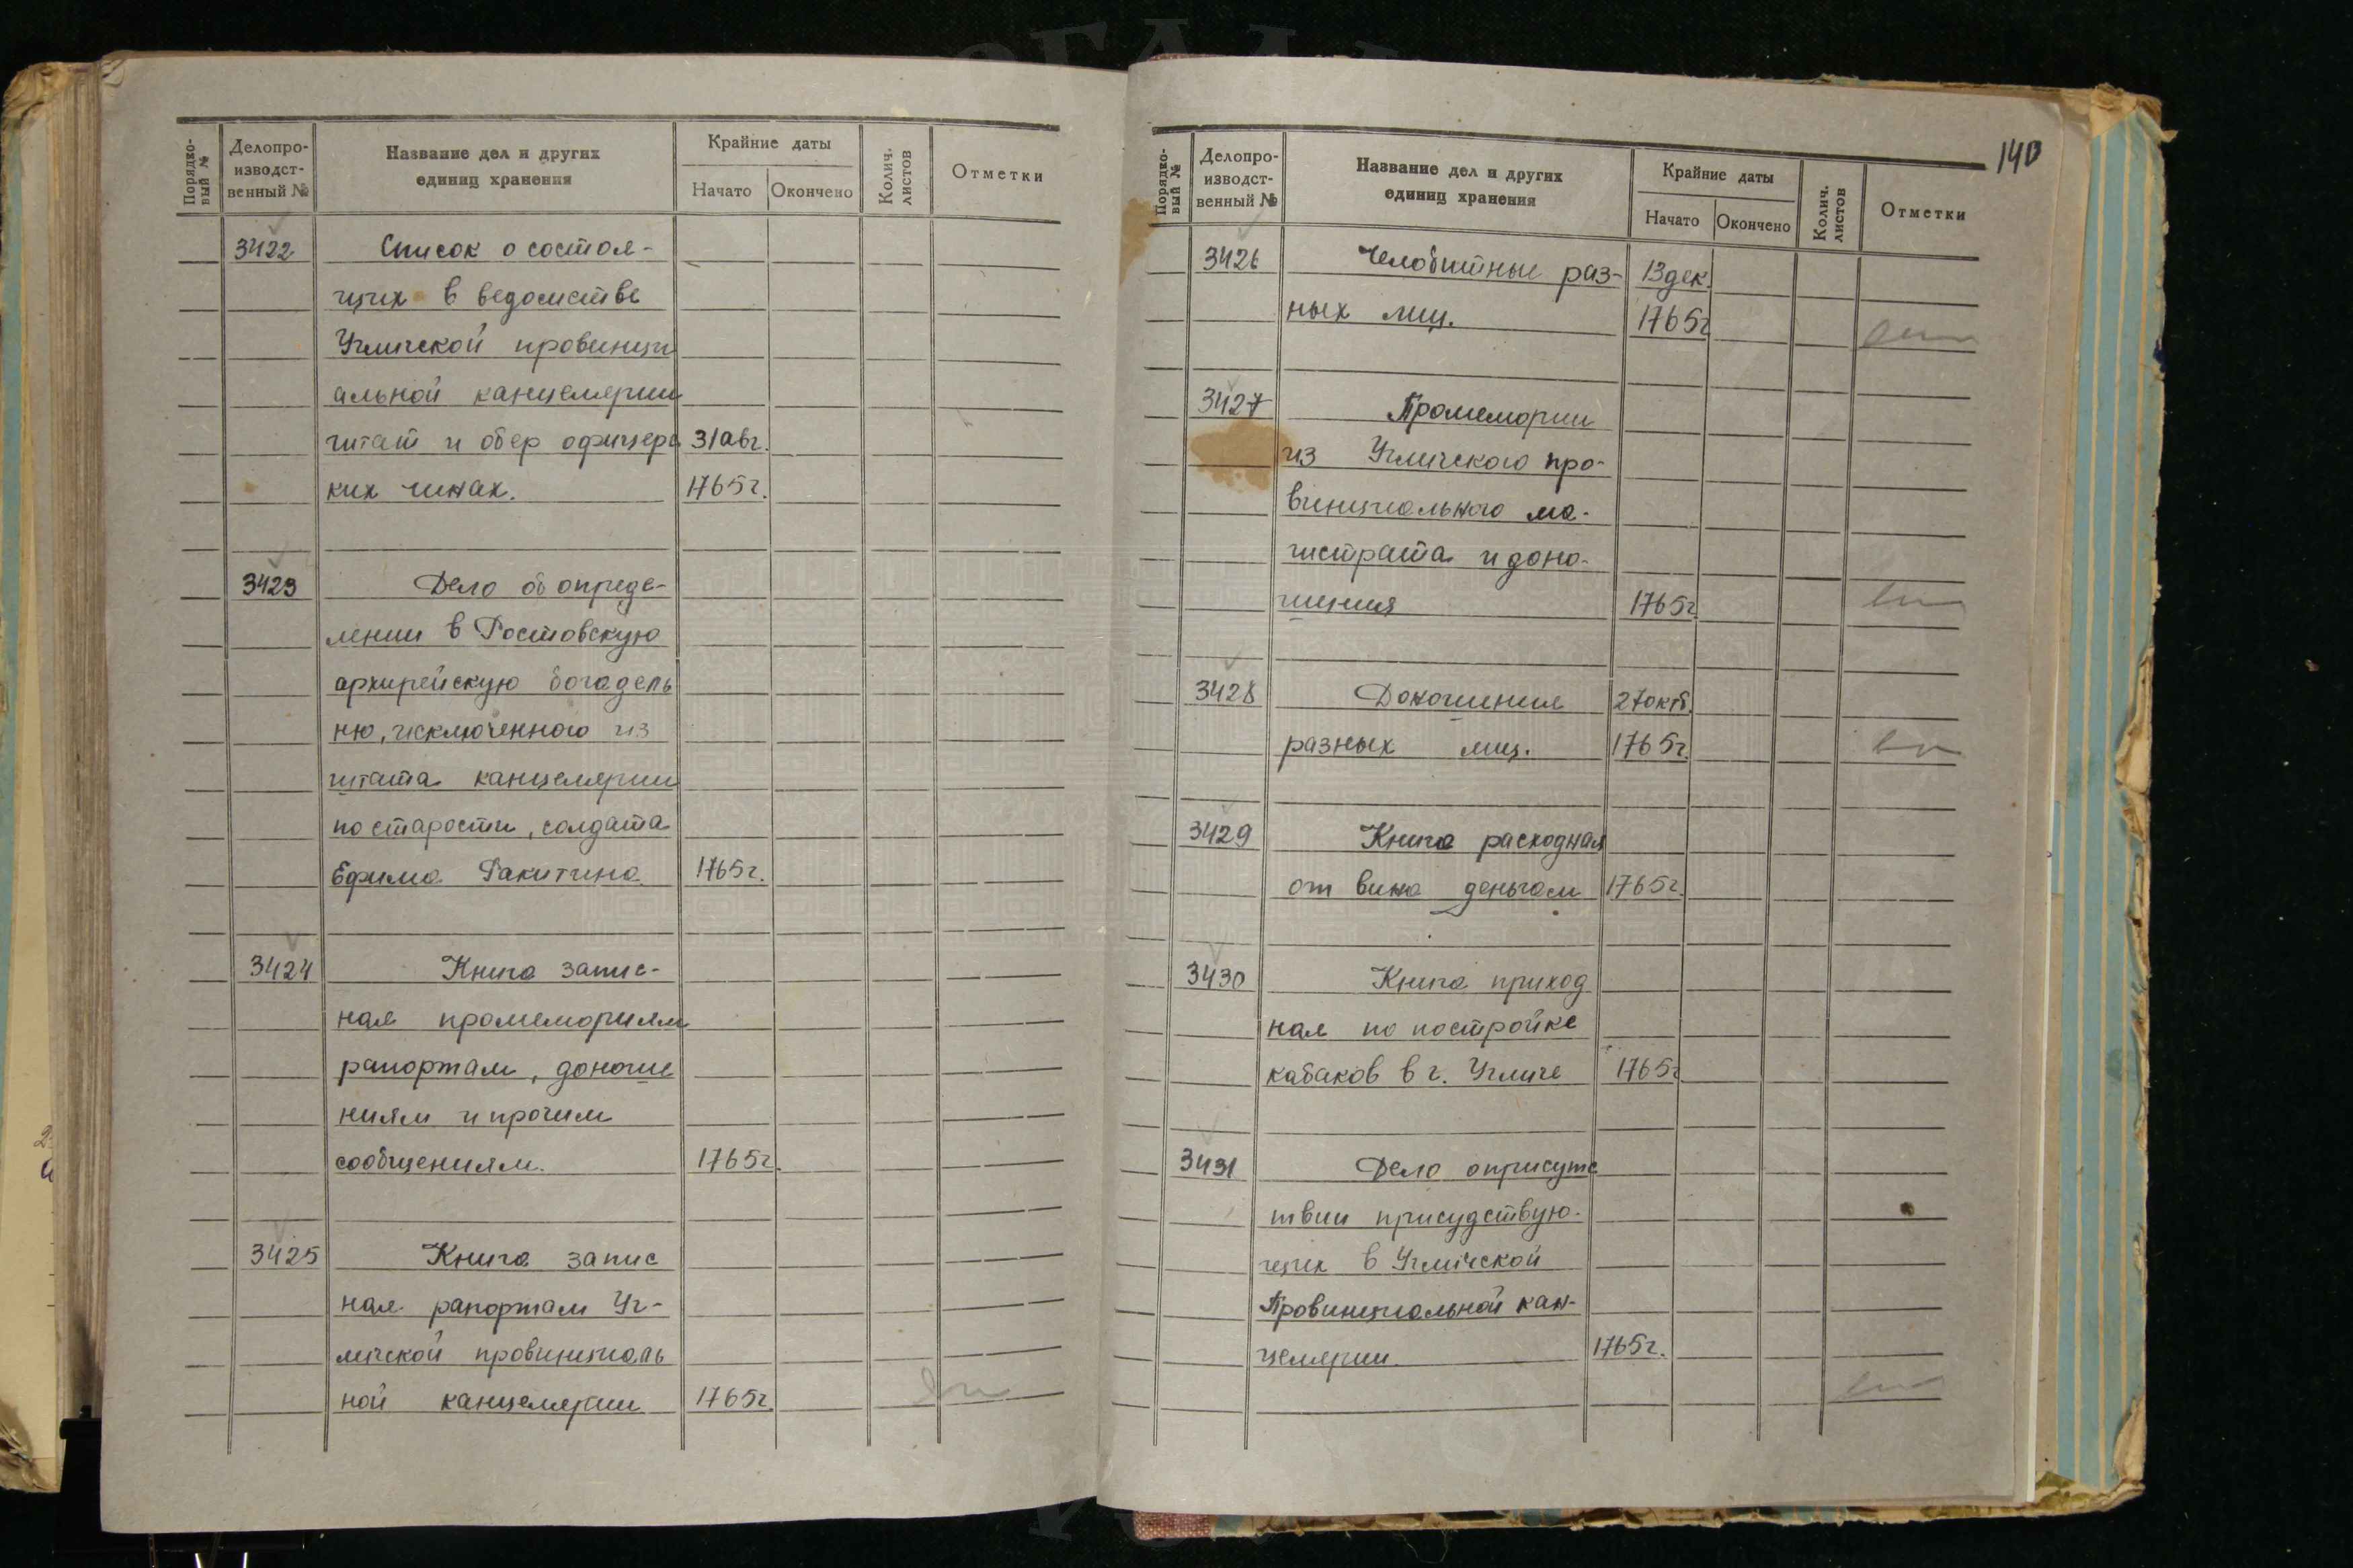 Порядко-
вый №
Делопро-
изводст-
венный №
Название дел и других
единиц хранения
Крайние даты
Начато
Окончено
Колич.
листов
Отметки
3422 Список о состоя-
щих в ведомстве
Угличской провинци
альной канцелярии
штат и обер офицерс 31 авг.
ких чинах. 1765 г.
3423 Дело об опреде-
лении в Ростовскую
архирейскую богадель
ню, исключенного из
штата канцелярии
по старости, солдата
Ефима Ракитина 1765 г.
3424 Книга запис-
ная промемориям
рапортам, доноше
ниям и прочим
сообщениям. 1765 г.
3425 Книга запис
ная рапортам Уг-
личской провинциаль
ной канцелярии 1765 г.
140
Порядко-
вый №
Делопро-
изводст-
венный №
Название дел и других
единиц хранения
Крайние даты
Начато
Окончено
Колич.
листов
Отметки
3426 Челобитные раз- 13 дек.
ных лиц. 1765 г
3427 Промемории
из Угличского про-
винциального ма-
гистрата и доно-
шения 1765 г
3428 Доношения 27 окт.
разных лиц. 1765 г.
3429 Книга расходная
от вина деньгам 1765 г.
3430 Книга приход
ная по постройке
кабаков в г. Угличе 1765 г
3431 Дело о присутс
твии присудствую-
щих в Угличской
Провинциальной кан-
целярии. 1765 г.